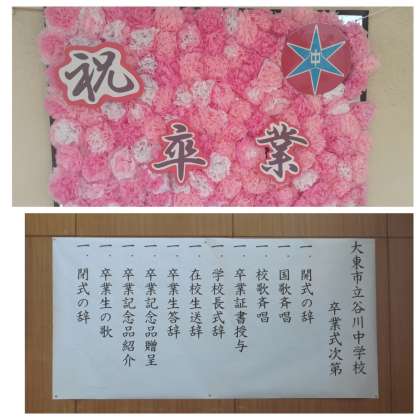 祝
中
卒業
大東市立谷川中学校
卒業式次第
一．開式の辞
一．国歌斉唱
一．校歌斉唱
一．卒業証書授与
一．学校長式辞
一．在校生送辞
一．卒業生答辞
一．卒業記念品贈呈
一．卒業記念品紹介
一．卒業生の歌
一．閉式の辞